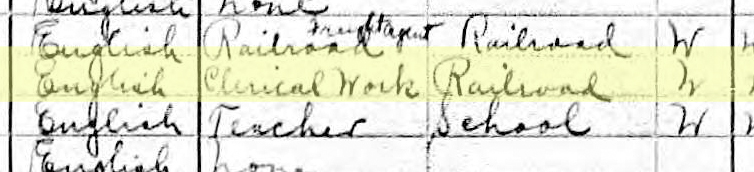 English None
English Railroad Freight Agent Railroad W
English Clerical Work Railroad W
English Teacher School W
English None